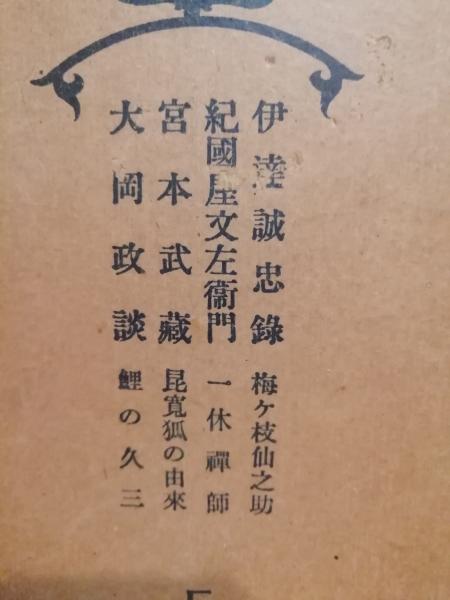 伊達誠忠錄 梅ヶ枝仙之助
紀國屋文左衞門 一休禪師
宮本武藏 昆寬狐の由來
大岡政談 鯉の久三